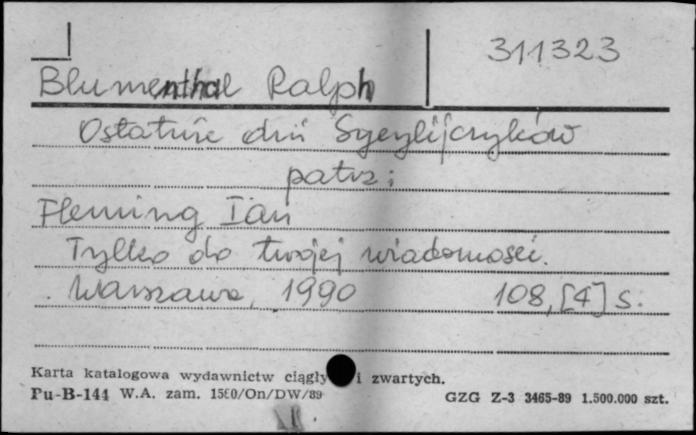 311323
Blumenthal Ralph
Ostatnie dni Sycylijczyków
patrz:
Fleming Ian
Tylko do twojej wiadomości.
Warszawa, 1990 108,[4] s.
Karta katalogowa wydawnictw ciągły i zwartych.
Pu-B-144 W.A. zam. 1580/On/DW/89 GZG Z-3 3465-89 1.500.000 szt.